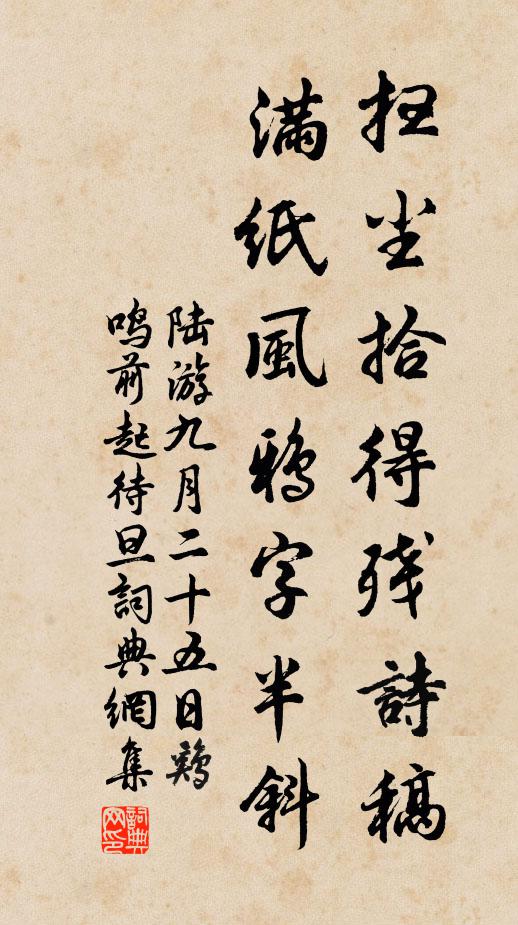 扫尘拾得残詩稿
滿紙風鴉字半斜
陆游九月二十五日鷄
鸣前起待旦詞典網集
詞典网印